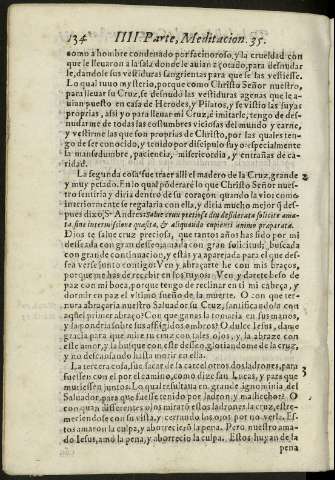 134 IIII Parte, Meditacion. 35.
como a hombre condenado por facinoroso, y la crueldad con
que le lleuaron a la sala donde le auian açotado, para desnudar
le, dandole sus vestiduras sangrientas para que se las vistiesse.
Lo qual tuuo mysterio, porque como Christo Señor nuestro,
para lleuar su Cruz, se desnudò las vestiduras agenas que le a-
uian puesto en casa de Herodes, y Pilatos, y se vistio las suyas
proprias, assi yo para lleuar mi Cruz, è imitarle, tengo de des-
nudarme de todas las costumbres viciosas del mundo y carne,
y vestirme las que son proprias de Christo, por las quales ten-
go de ser conocido, y tenido por discipulo suyo especialmente
la mansedumbre, paciencia, misericordia, y entrañas de ca-
ridad.
La segunda cosa fue traer alli el madero de la Cruz, grande 2
y muy pesado. En lo qual põderarè lo que Christo Señor nues-
tro sentiria y diria dentro de su coraçon quando la vio: como
interiormente se regalaria con ella, y diria mucho mejor q̃ des-
pues dixo S. Andres: Salue crux pretiosa diu desiderata solicitè ama-
ta sine intermissione quæsita, & aliquando cupienti animo præparata.
Dios te salue cruz preciosa, que tantos años has sido por mi
desseada con gran desseo, amada con gran solicitud, buscada
con grande continuacion, y estàs ya aparejada para el que des-
sea verse junto contigo. Ven y abraçarte he con mis braços,
porque me has de recebir en los tuyos. Ven y darete beso de
paz con mi boca, porque tengo de reclinar en ti mi cabeça, y
dormir en paz el vltimo sueño de la muerte. O con que ter-
nura abraçaria nuestro Saluador su Cruz, santificandola con
aquel primer abraço? Con que ganas la tomaria en sus manos,
y la pondria sobre sus afligidos ombros? O dulce Iesus, dame
gracia para que mire tu cruz con tales ojos, y la abraze con
este amor, y la busque con este desseo, gloriandome de la cruz,
y no descansando hasta morir en ella.
La tercera cosa, fue sacar de la carcel otros dos ladrones, para 3
fuessen con el por el camino, como dize san Lucas, y para que
muriessen juntos. Lo qual resultaua en grande ignominia del
Saluador, para que fuesse tenido por ladron, y malhechor. O
con quan differentes ojos miraron estos ladrones la cruz, estre-
meciendose con su vista, y cerrando los ojos por no verla. Es-
tos amaron la culpa, y aborrecio la pena. Pero nuestro ama-
do Iesus, amò la pena, y aborrecio la culpa. Estos huyan de la
pena